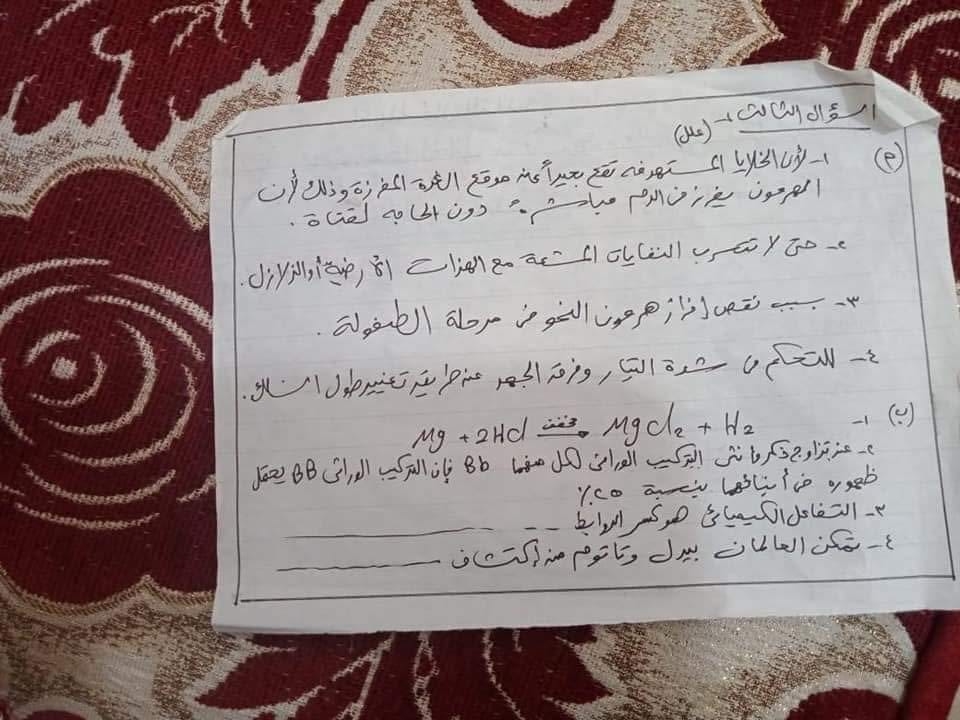 السؤال الثالث :- (علل)
(م) ١- لأن الخلايا المستهدفة تقع بعيداً عن موقع الغدة المفرزة وذلك لأن
الهرمون يفرز فى الدم مباشرة دون الحاجه لقناة .
٢- حتى لا تتسرب النفايات المشعة مع الهزات الأرضية أو الزلازل .
٣- بسبب نقص إفراز هرمون النحو فى مرحلة الطفولة .
٤- للتحكم فى شدة التيار وفرق الجهد عن طريق تغيير طول السلك .
(ب) ١- Mg + 2Hcl مخفف → Mgcl2 + H2
٢- عند تزاوج ذكر وأنثى التركيب الوراثى لكل منهما Bb فإن التركيب الوراثى BB يحتمل
ظهوره فى أبنائهما بنسبة ٢٥٪
٣- التفاعل الكيميائى هو كسر الروابط
٤- تمكن العالمان بيدل وتاتوم من إكتشاف